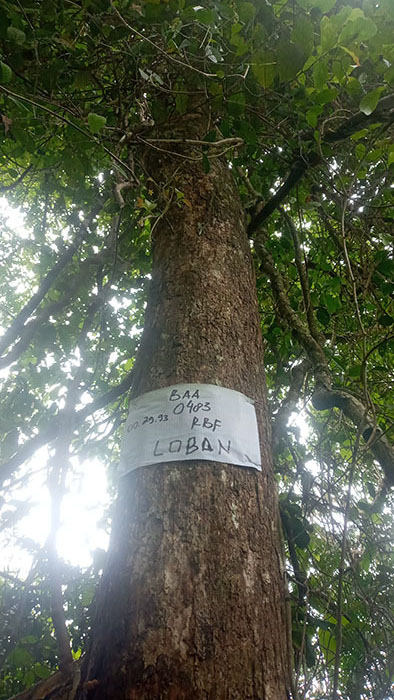 BAA
0483
00.29.93 RBF
LOBAN